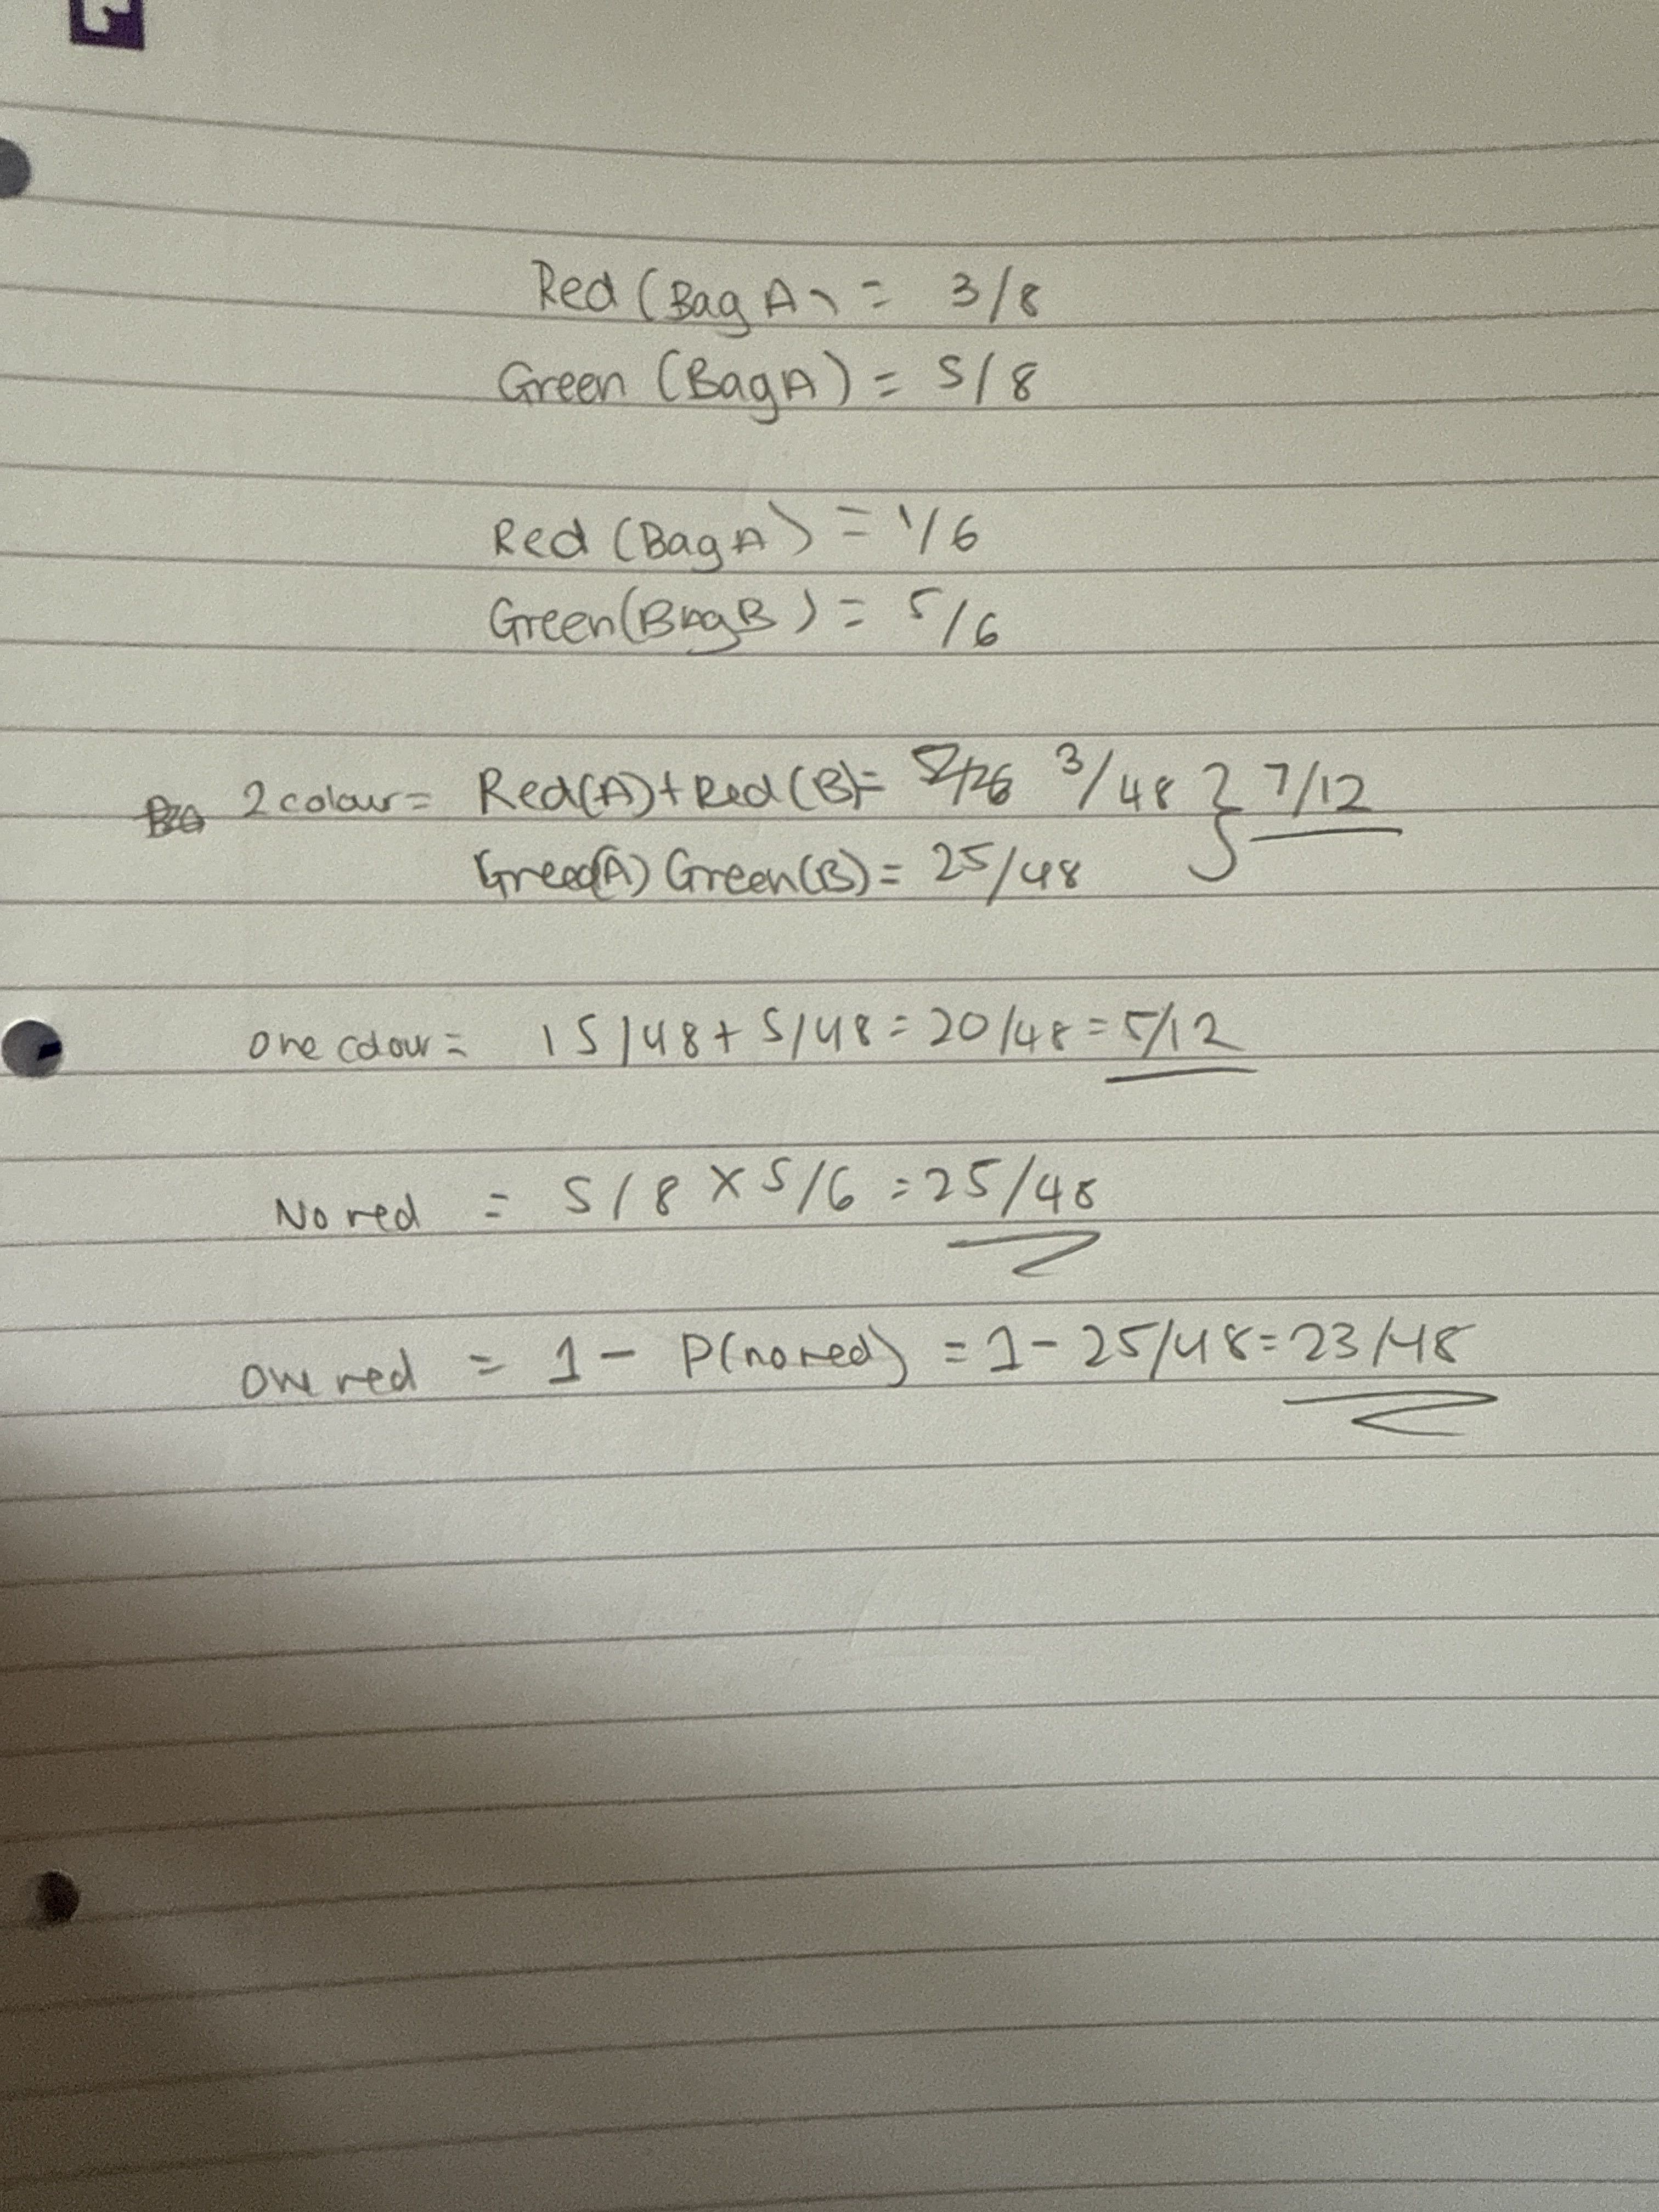 Red (Bag A) = 3/8
Green (Bag A) = 5/8
Red (Bag A) = 1/6
Green (Bag B) = 5/6
2 colour = Red(A) + Red(B) = 3/48 } 7/12
Greed(A) Green(B) = 25/48
one colour = 15/48 + 5/48 = 20/48 = 5/12
No red = 5/8 × 5/6 = 25/48
One red = 1 - P(no red) = 1 - 25/48 = 23/48